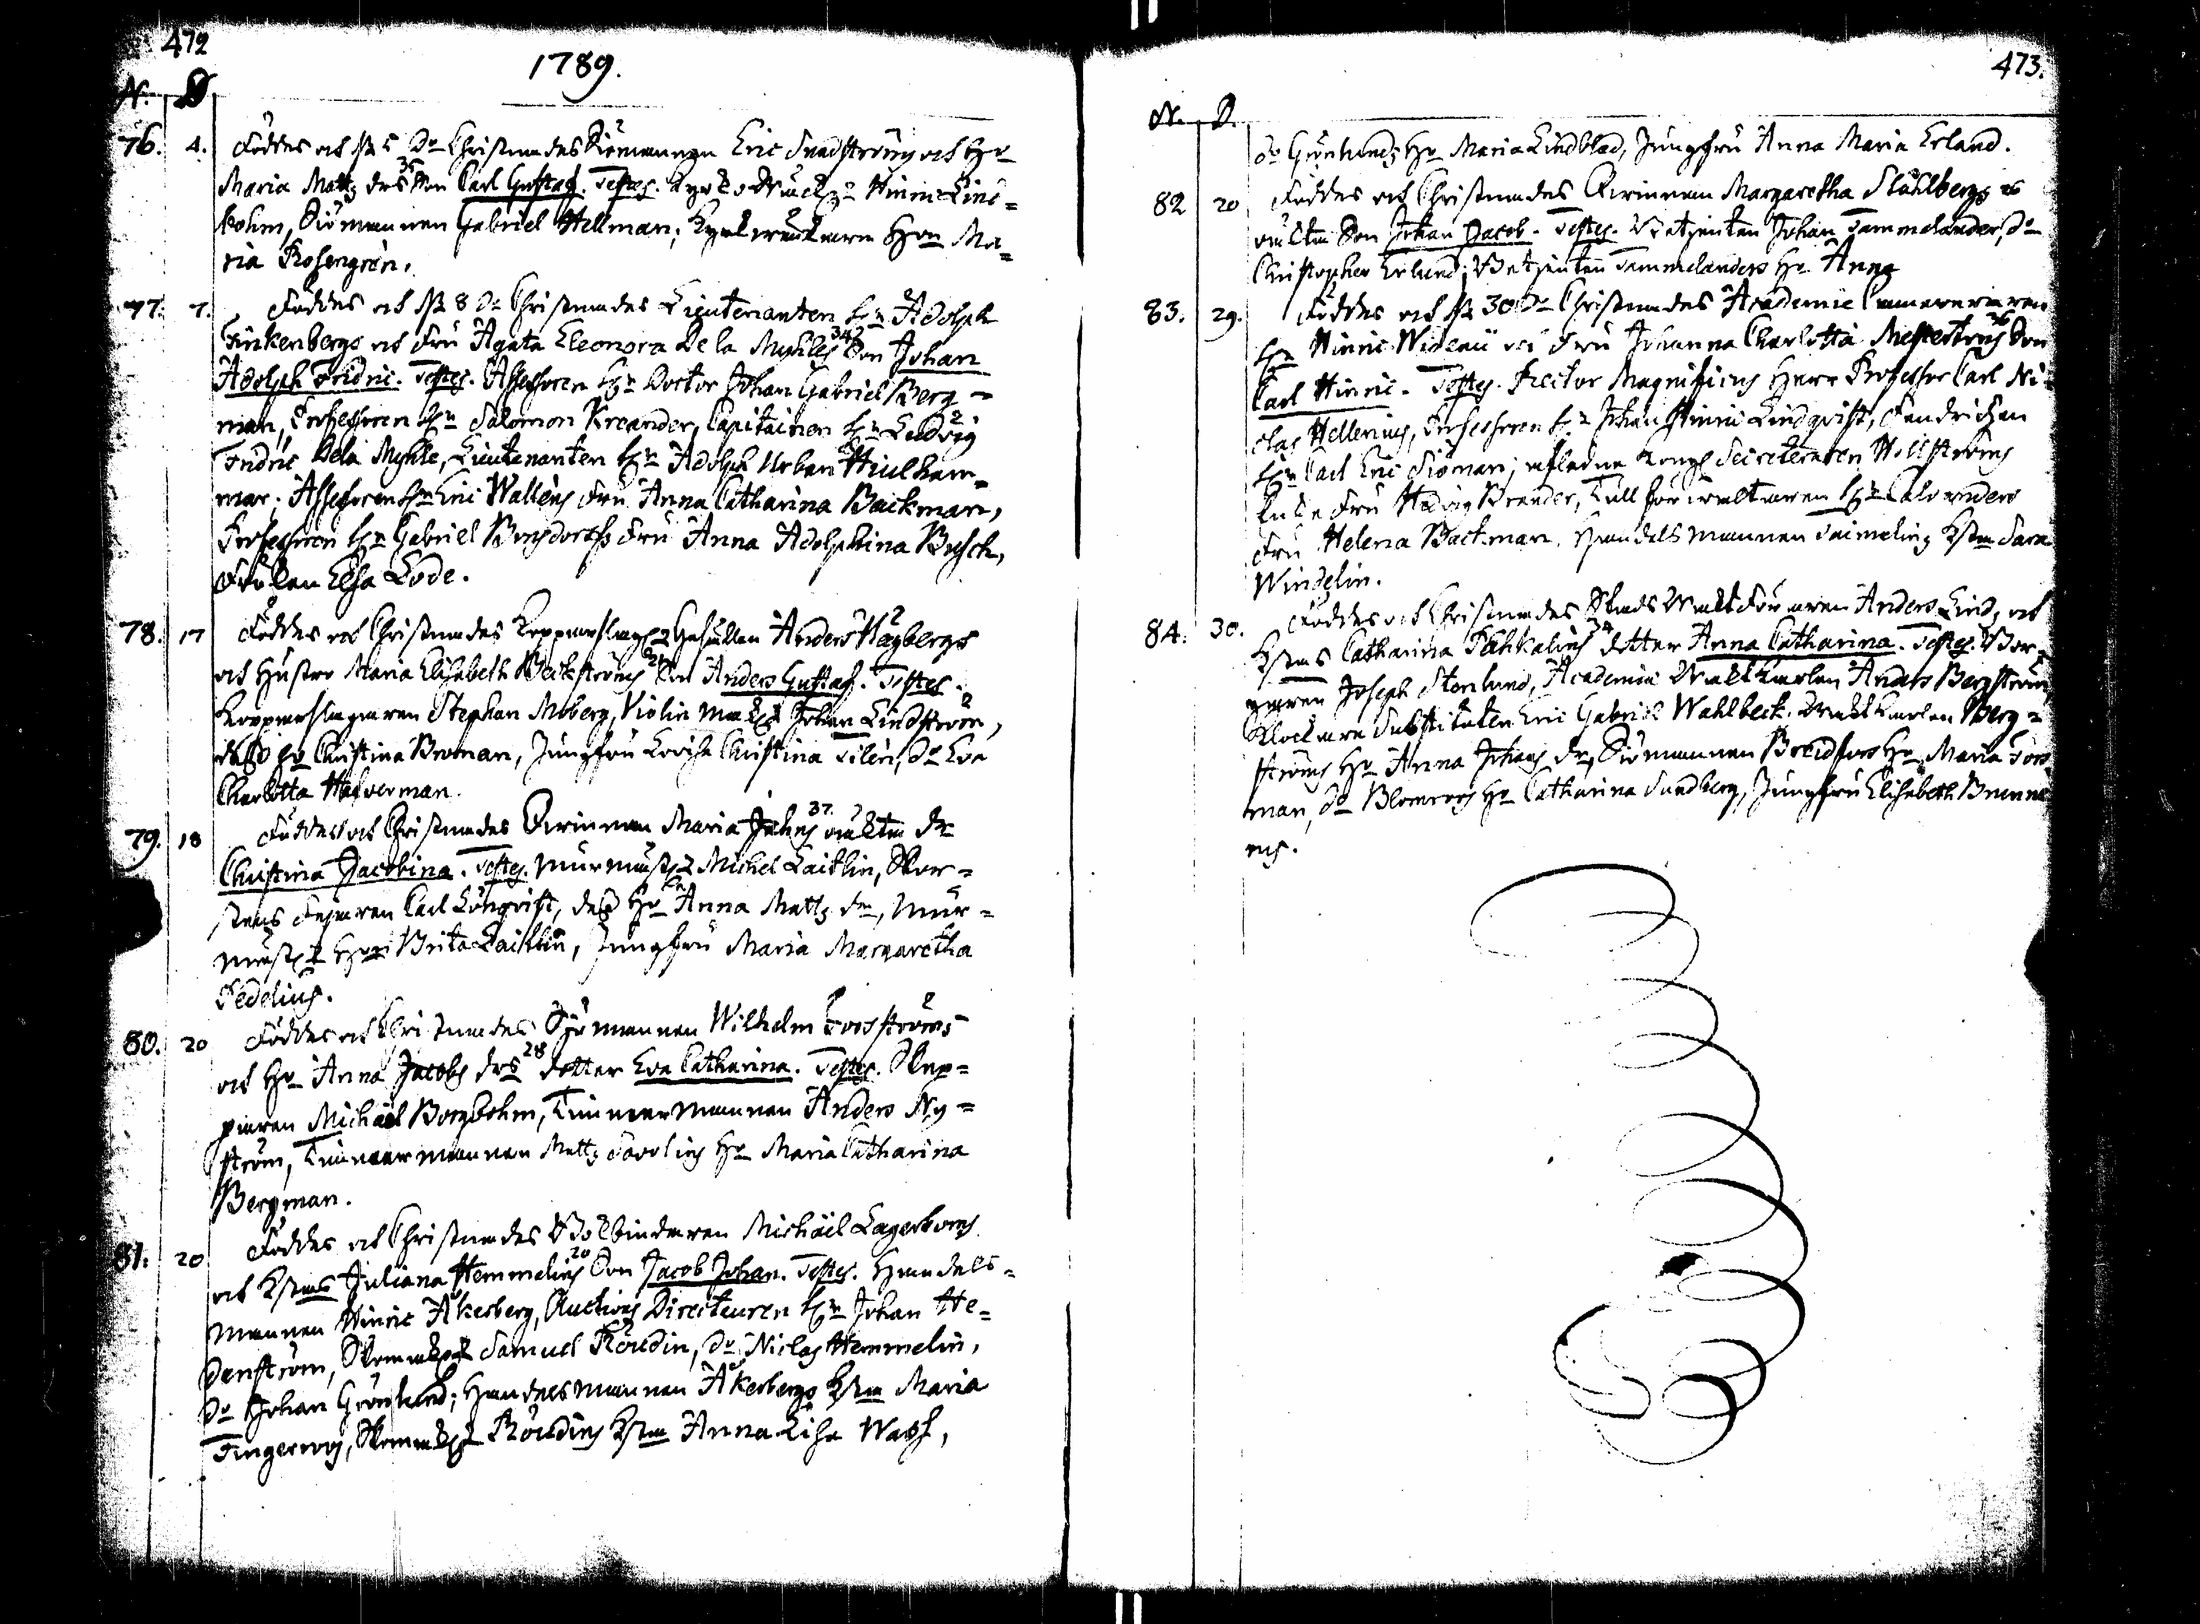 472
1789.
N. D
76. 4. Föddes och d. 5 Do Christnades Siömannen Eric Sundströms och Hu
Maria Matts drs 35 Son Carl Gustaf. Testes. Hinric Lind=
bohm, Siömannen Gabriel Hellman; Hon Ma=
ria Rosengrén.
77. 7. Föddes och d. 8 Do Christnades Lieutenanten Hr Adolph
Finkenbergs och Fru Agata Eleonora De la Myhles 34 Son Johan
Adolph Fridric. Testes. Assessoren Hr Doctor Johan Gabriel Berg=
man, Professoren Hr Salomon Kreander, Capitainen Hr Ludvig
Fridric Dela Myhle, Lieutenanten Hr Adolph Urban Hiulham=
mar; Assessoren Hr Eric Wallens Fru Anna Catharina Backman,
Professoren Hr Gabriel Bonsdorffs Fru Anna Adolphina Busch,
Fröken Elsa Lode.
78. 17 Föddes och Christnades Kopparslag. Gesällen Anders Hagbergs
och Hustro Maria Elisabeth Beckströms 24 Son Anders Gustaf. Testes.
Kopparslagaren Stephan Moberg, Violin Johan Lindström,
Christina Broman, Jungfru Lovisa Christina Silén, Do Eva
Charlotta Halverman.
79. 18 Föddes och Christnades Qvinnan Maria Johns 37 oäkta dr
Christina Jacobina. Testes. Murmäst. Michel Laitlin, Skor=
stens Fejaren Carl Lönqvist, dess Hu Anna Matts dr, Mur=
mäst. Hon Brita Laitlin, Jungfru Maria Margaretha
Fedelius.
80. 20 Föddes och Christnades Sjömannen Wilhelm Forsströms
och Hu Anna Jacobs drs 28 dotter Eva Catharina. Testes. Skep=
paren Michael Borgbohm, Timmermannen Anders Ny=
ström, Timmermannen Matts Savolins Hu Maria Catharina
Bergman.
81. 20 Föddes och Christnades Bokbindaren Michäel Lagerboms
och Hstrus Juliana Hemmelins 20 Son Jacob Johan. Testes. Handels=
mannen Hinric Åkerberg, Auctions Directeuren Hr Johan He=
denström, Samuel Röudin, Do Niclas Hemmelin,
Do Johan Grönlund; Handelsmannen Åkerbergs Maria
Tingerroos, Röudins Anna Lisa Wass,
473.
N. D.
Do Grönlunds Hu Maria Lindblad, Jungfru Anna Maria Erland.
82 20 Föddes och Christnades Qvinnan Margaretha Stählbergs 26
oäkta Son Johan Jacob. Testes. Johan Tammelander, Do
Christopher Erlund; Tammelanders Hu Anna
83. 29. Föddes och d. 30 Do Christnades Academie Camereraren
Hr Hinric Wideni och Fru Johanna Charlotta Mestertons 26 Son
Carl Hinric. Testes. Rector Magnificus Herr Professor Carl Ni=
clas Hellenius, Professoren Hr Johan Hinric Lindqvist, Fendrichen
Hr Carl Eric Siöman; afledne Kongl Secreteraren Wollströms
Enke Fru Hedvig Brander, Tull Förvaltaren Hr Calvanders
Fru Helena Backman. Handelsmannen Saimelins Sara
Windelin.
84. 30. Föddes och Christnades Stads Anders Lind, och
Hstrus Catharina Pahkalins 34 dotter Anna Catharina. Testes. Bor=
garen Joseph Stenlund, Academie Anders Bergström,
Klockare Substituten Eric Gabriel Wahlbeck. Berg=
ströms Hu Anna Johans dr, Siömannen Bredfors Hu Maria Fors
man, Do Blomroos Hu Catharina Sundberg, Jungfru Elisabeth Brunne
rus.